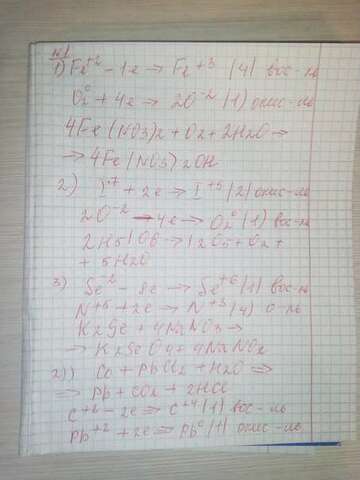 №1
1) Fe+2 - 1e → Fe+3 |4| вос-ль
O2 0 + 4e → 2O-2 |1| окис-ль
4Fe(NO3)2 + O2 + 2H2O →
→ 4Fe(NO3)2OH
2) I+7 + 2e → I+5 |2| окис-ль
2O-2 - 4e → O2 0 |1| вос-ль
2H5IO6 → I2O5 + O2 +
+ 5H2O
3) Se-2 - 8e → Se+6 |1| вос-ль
N+5 + 2e → N+3 |4| о-ль
K2Se + 4NaNO3 →
→ K2SeO4 + 4NaNO2
2)) Co + PbCl2 + H2O ⇒
⇒ Pb + CO2 + 2HCl
C+2 - 2e ⇒ C+4 |1| вос-ль
Pb+2 + 2e ⇒ Pb0 |1| окис-ль